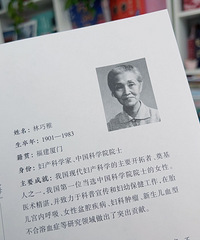 姓名：林巧稚
生卒年：1901—1983
籍贯：福建厦门
身份：妇产科学家、中国科学院院士
主要成就：我国现代妇产科学的主要开拓者、奠基
人之一，我国第一位当选中国科学院院士的女性。
医术精湛，并致力于科普宣传和妇幼保健工作，在胎
儿宫内呼吸、女性盆腔疾病、妇科肿瘤、新生儿血型
不合溶血症等研究领域做出了突出贡献。